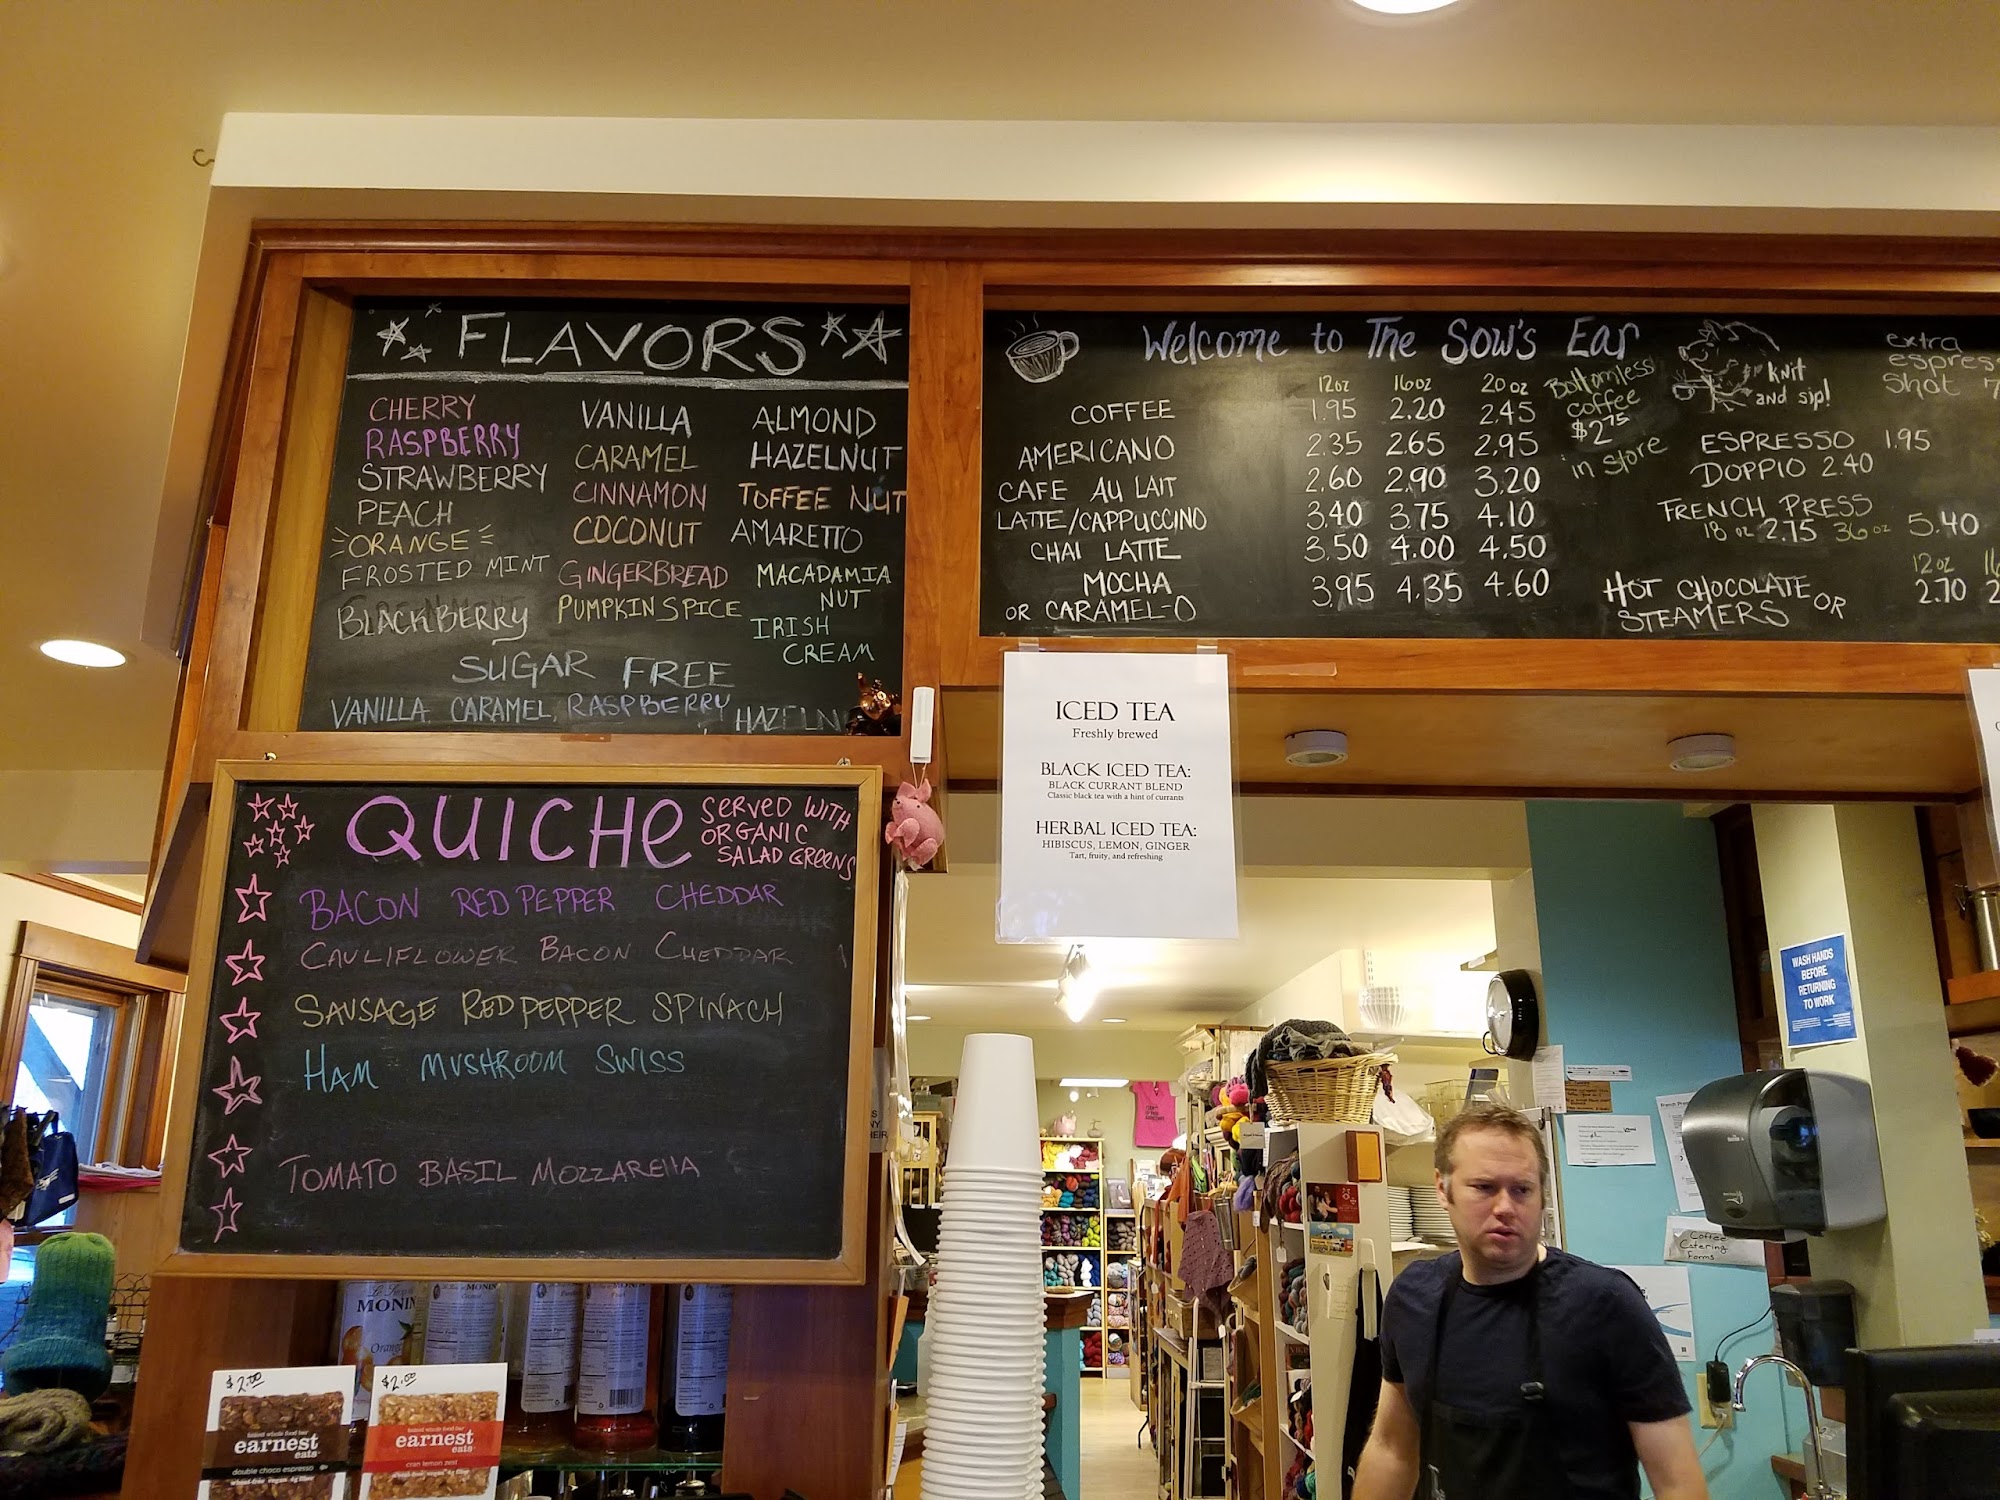 FLAVORS
CHERRY
RASPBERRY
STRAWBERRY
PEACH
ORANGE
FROSTED MINT
BLACKBERRY
VANILLA
CARAMEL
CINNAMON
COCONUT
GINGERBREAD
PUMPKIN SPICE
ALMOND
HAZELNUT
TOFFEE NUT
AMARETTO
MACADAMIA
NUT
IRISH
CREAM
SUGAR FREE
VANILLA, CARAMEL, RASPBERRY, HAZELN
Welcome to The Sow's Ear
12oz 16oz 20oz
COFFEE 1.95 2.20 2.45
AMERICANO 2.35 2.65 2.95
CAFE AU LAIT 2.60 2.90 3.20
LATTE/CAPPUCCINO 3.40 3.75 4.10
CHAI LATTE 3.50 4.00 4.50
MOCHA 3.95 4.35 4.60
OR CARAMEL-O
Bottomless
coffee
$2.75
in store
knit
and sip!
extra
espres
shot 7
ESPRESSO 1.95
DOPPIO 2.40
FRENCH PRESS
18 oz 2.75 36 oz 5.40
12oz 16
HOT CHOCOLATE OR 2.70 2
STEAMERS
QUICHE
SERVED WITH
ORGANIC
SALAD GREENS
BACON RED PEPPER CHEDDAR
CAULIFLOWER BACON CHEDDAR
SAUSAGE RED PEPPER SPINACH
HAM MUSHROOM SWISS
TOMATO BASIL MOZZARELLA
ICED TEA
Freshly brewed
BLACK ICED TEA:
BLACK CURRANT BLEND
Classic black tea with a hint of currants
HERBAL ICED TEA:
HIBISCUS, LEMON, GINGER
Tart, fruity, and refreshing
WASH HANDS
BEFORE
RETURNING
TO WORK
Coffee
Catering
Forms
MONIN
Orange
MONIN
$2.00
earnest
eats
double choco espresso
$2.00
earnest
eats
cran lemon zest